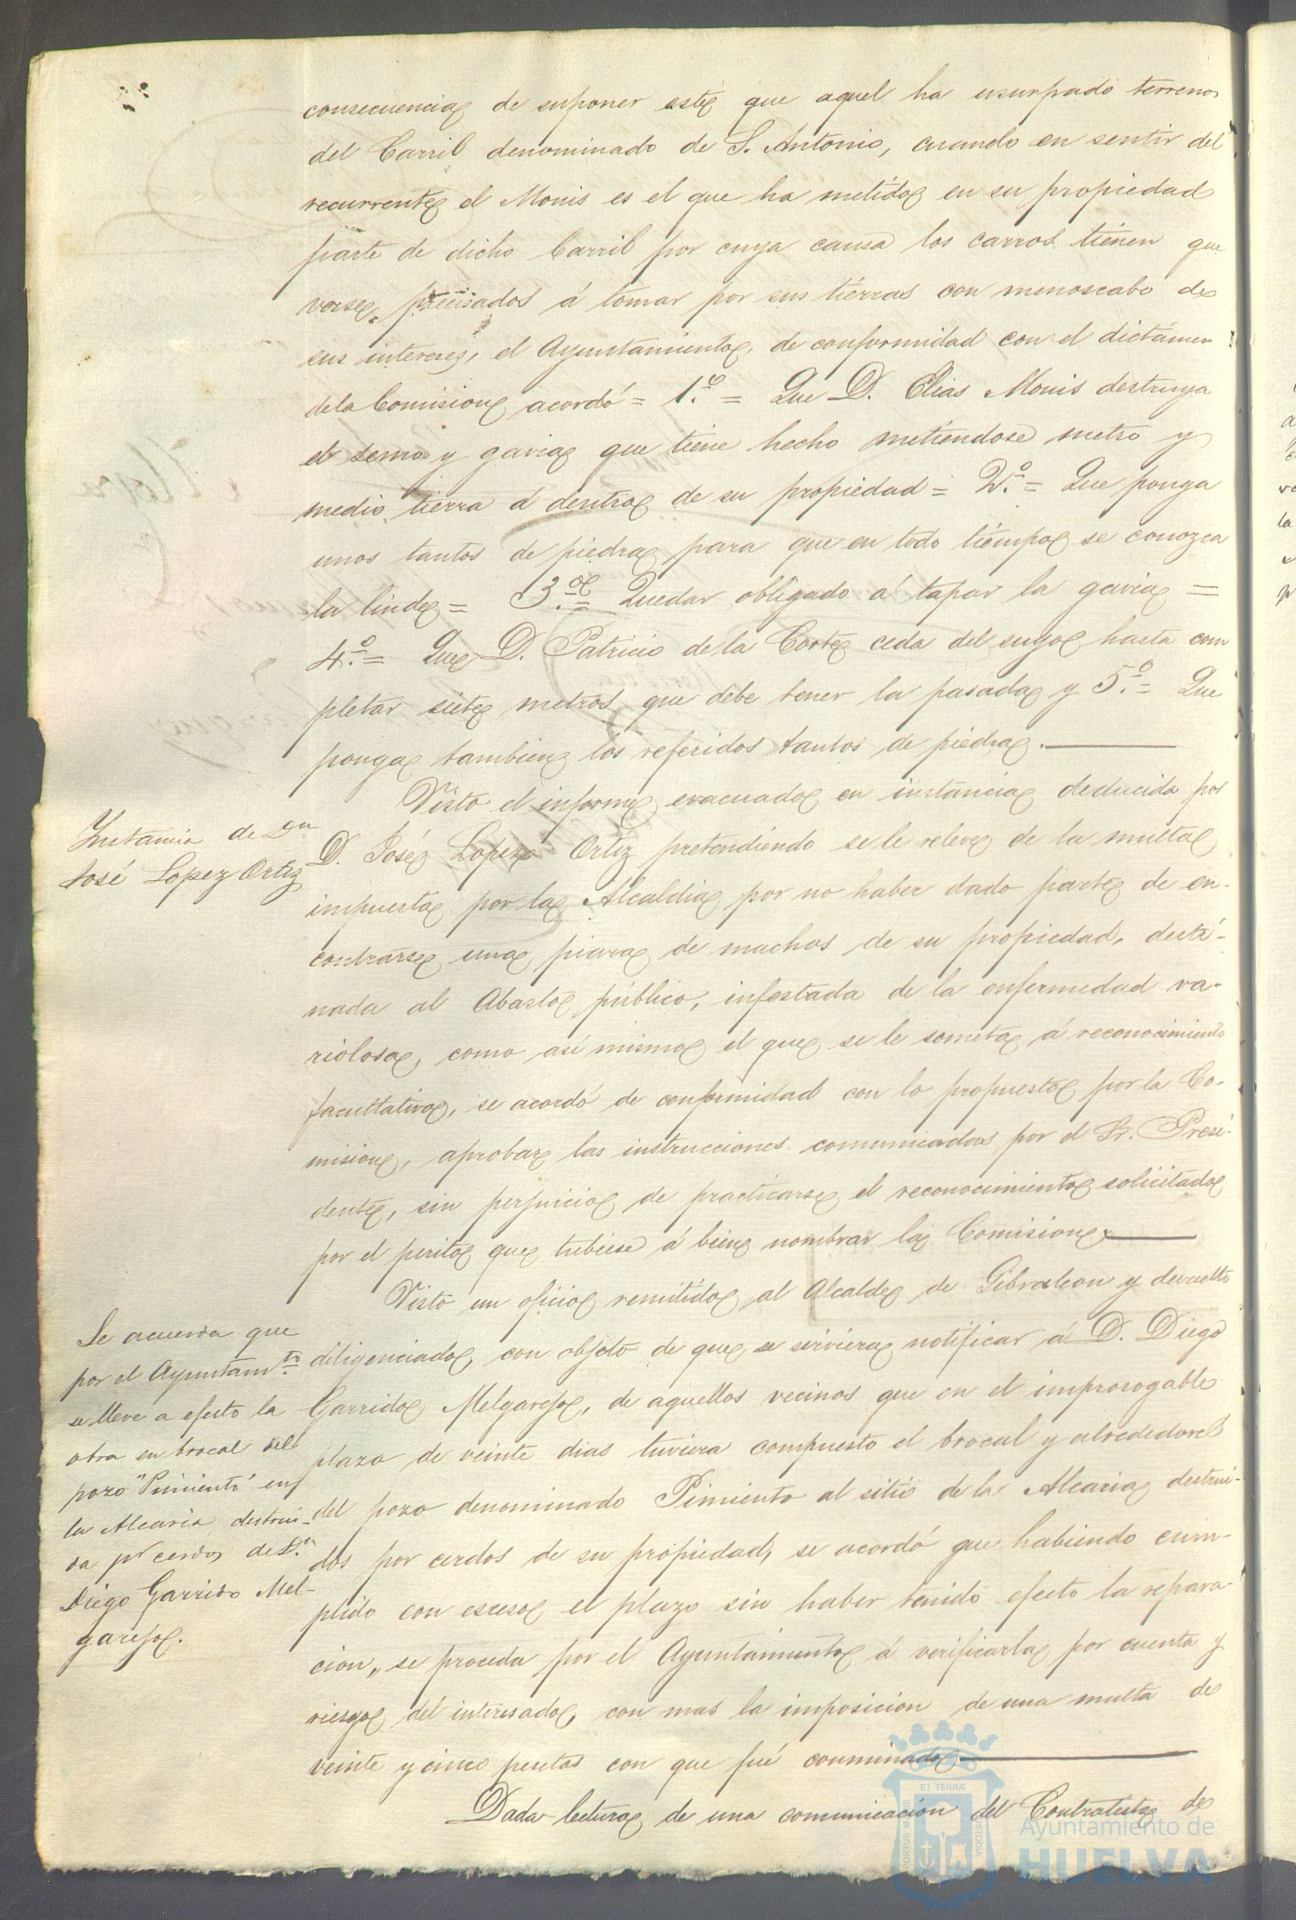 consecuencia de suponer este que aquel ha usurpado terrenos
del Carril denominado de S. Antonio, cuando en sentir del
recurrente el Monis es el que ha metido en su propiedad
parte de dicho Carril por cuya causa los carros tienen que
verse precisados á tomar por sus tierras con menoscabo de
sus intereses, el Ayuntamiento, de conformidad con el dictamen
de la Comision acordó = 1.º = Que D. Elias Monis destruya
el y gavia que tiene hecho metiendose metro y
medio tierra á dentro de su propiedad = 2.º = Que ponga
unos tantos de piedra para que en todo tiempo se conozca
la linde = 3.º = Quedar obligado á tapar la gavia =
4.º = Que D. Patricio de la Corte ceda del suyo hasta com
pletar siete metros que debe tener la pasada y 5.º = Que
ponga tambien los referidos tantos de piedra.
Instancia de Dn
José Lopez Ortiz
Visto el informe evacuado en instancia deducida por
D. José Lopez Ortiz pretendiendo se le releve de la multa
impuesta por la Alcaldia por no haber dado parte de en-
contrarse una piara de machos de su propiedad, desti-
nada al Abasto público, infestada de la enfermedad va-
riolosa, como asi mismo el que se le someta á reconocimiento
facultativo, se acordó de conformidad con lo propuesto por la Co-
mision, aprobar las instrucciones comunicadas por el Sr. Presi-
dente, sin perjuicio de practicarse el reconocimiento solicitado
por el perito que tubiese á bien nombrar la Comision
Se acuerda que
por el Ayuntamto
se lleve a efecto la
obra en brocal del
pozo "Pimiento" en
la Alcaria destrui-
da pr cerdos de Dn
Diego Garrido Mel-
garejo.
Visto un oficio remitido al Alcalde de Gibraleon y devuelto
diligenciado, con objeto de que se serviera notificar á D. Diego
Garrido Melgarejo, de aquellos vecinos que en el improrogable
plazo de veinte dias tuviera compuesto el brocal y alrededores
del pozo denominado Pimiento al sitio de la Alcaria destrui-
dos por cerdos de su propiedad, se acordó que habiendo cum-
plido con esceso el plazo sin haber tenido efecto la repara-
cion, se proceda por el Ayuntamiento á verificarla por cuenta y
riesgo del interesado, con mas la imposicion de una multa de
veinte y cinco pesetas con que fué conminado
Dada lectura de una comunicacion del Contratista de
PORTUS MARIS
ET TERRÆ
CUSTODIA
Ayuntamiento de
HUELVA